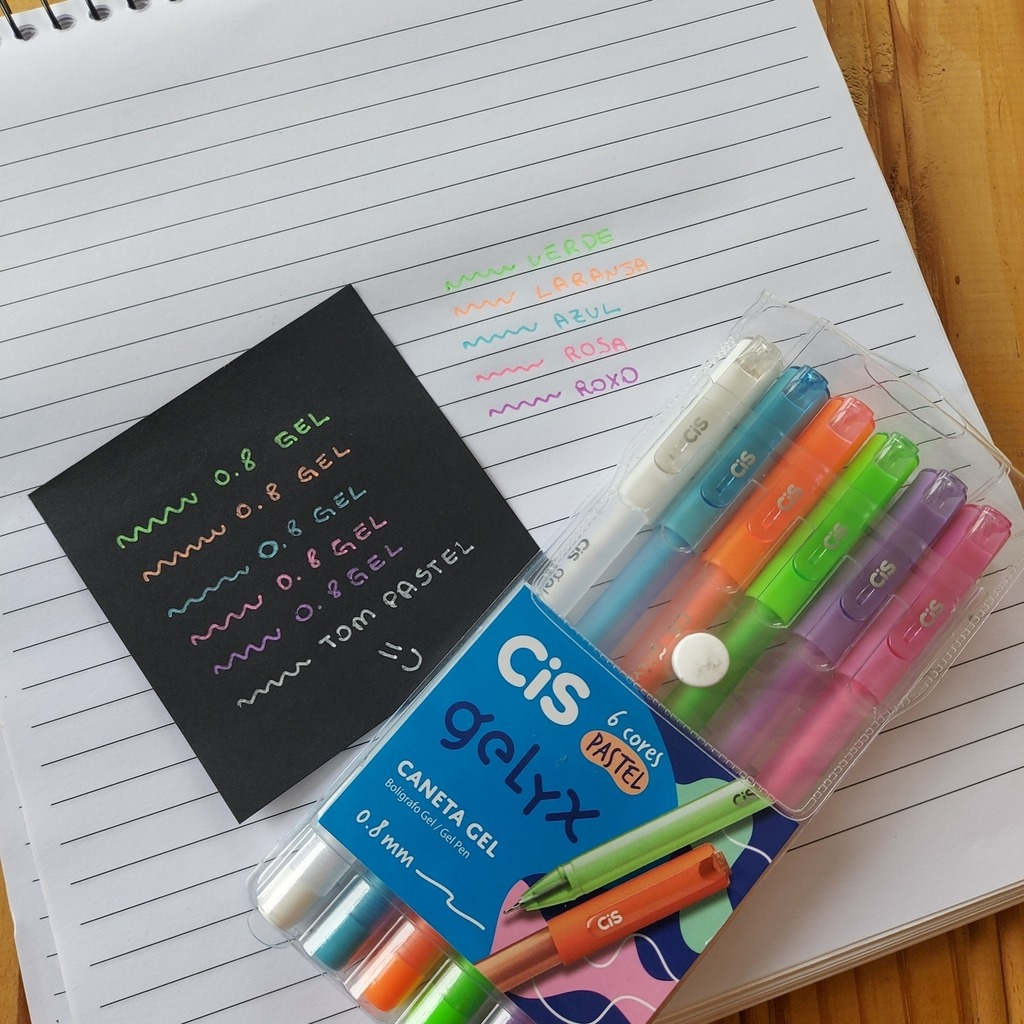 VERDE
LARANJA
AZUL
ROSA
ROXO
0.8 GEL
0.8 GEL
0.8 GEL
0.8 GEL
0.8 GEL
TOM PASTEL
CiS
CiS
CiS
CiS
CiS
CiS
CiS gel
CiS
gelyx
6 cores
PASTEL
CANETA GEL
Bolígrafo Gel / Gel Pen
0.8mm
CiS
CiS